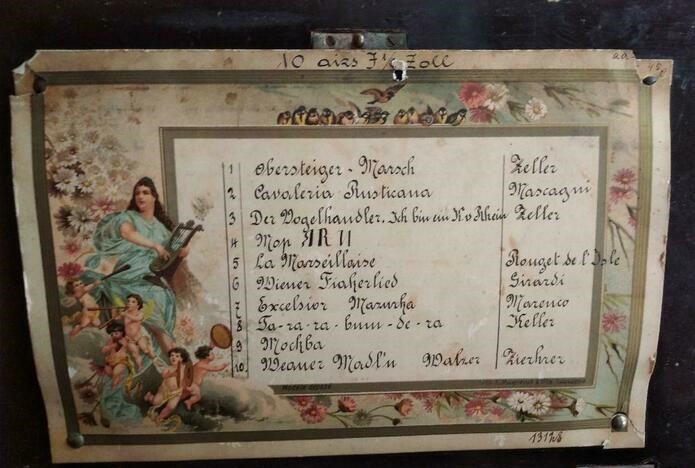 10 airs 7¼ Zoll
1 Obersteiger - Marsch Zeller
2 Cavaleria Rusticana Mascagni
3 Der Vogelhandler, Ich bin ein K v Rhein Zeller
4 Mop
5 La Marseillaise Rouget de l'Isle
6 Wiener Fiakerlied Girardi
7 Excelsior Mazurka Marenco
8 Ta-ra-ra-bum-de-ra Keller
9 Mockba
10. Weaner Madl'n Walzer Zierhrer
13128